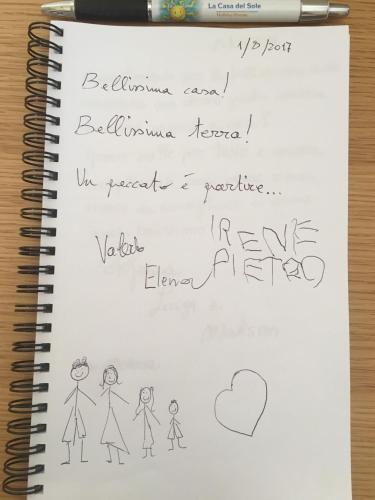 La Casa del Sole
Holiday House
1/8/2017
Bellissima casa!
Bellissima terra!
Un peccato è partire...
Valerio
IRENE
Elena
PIETRO